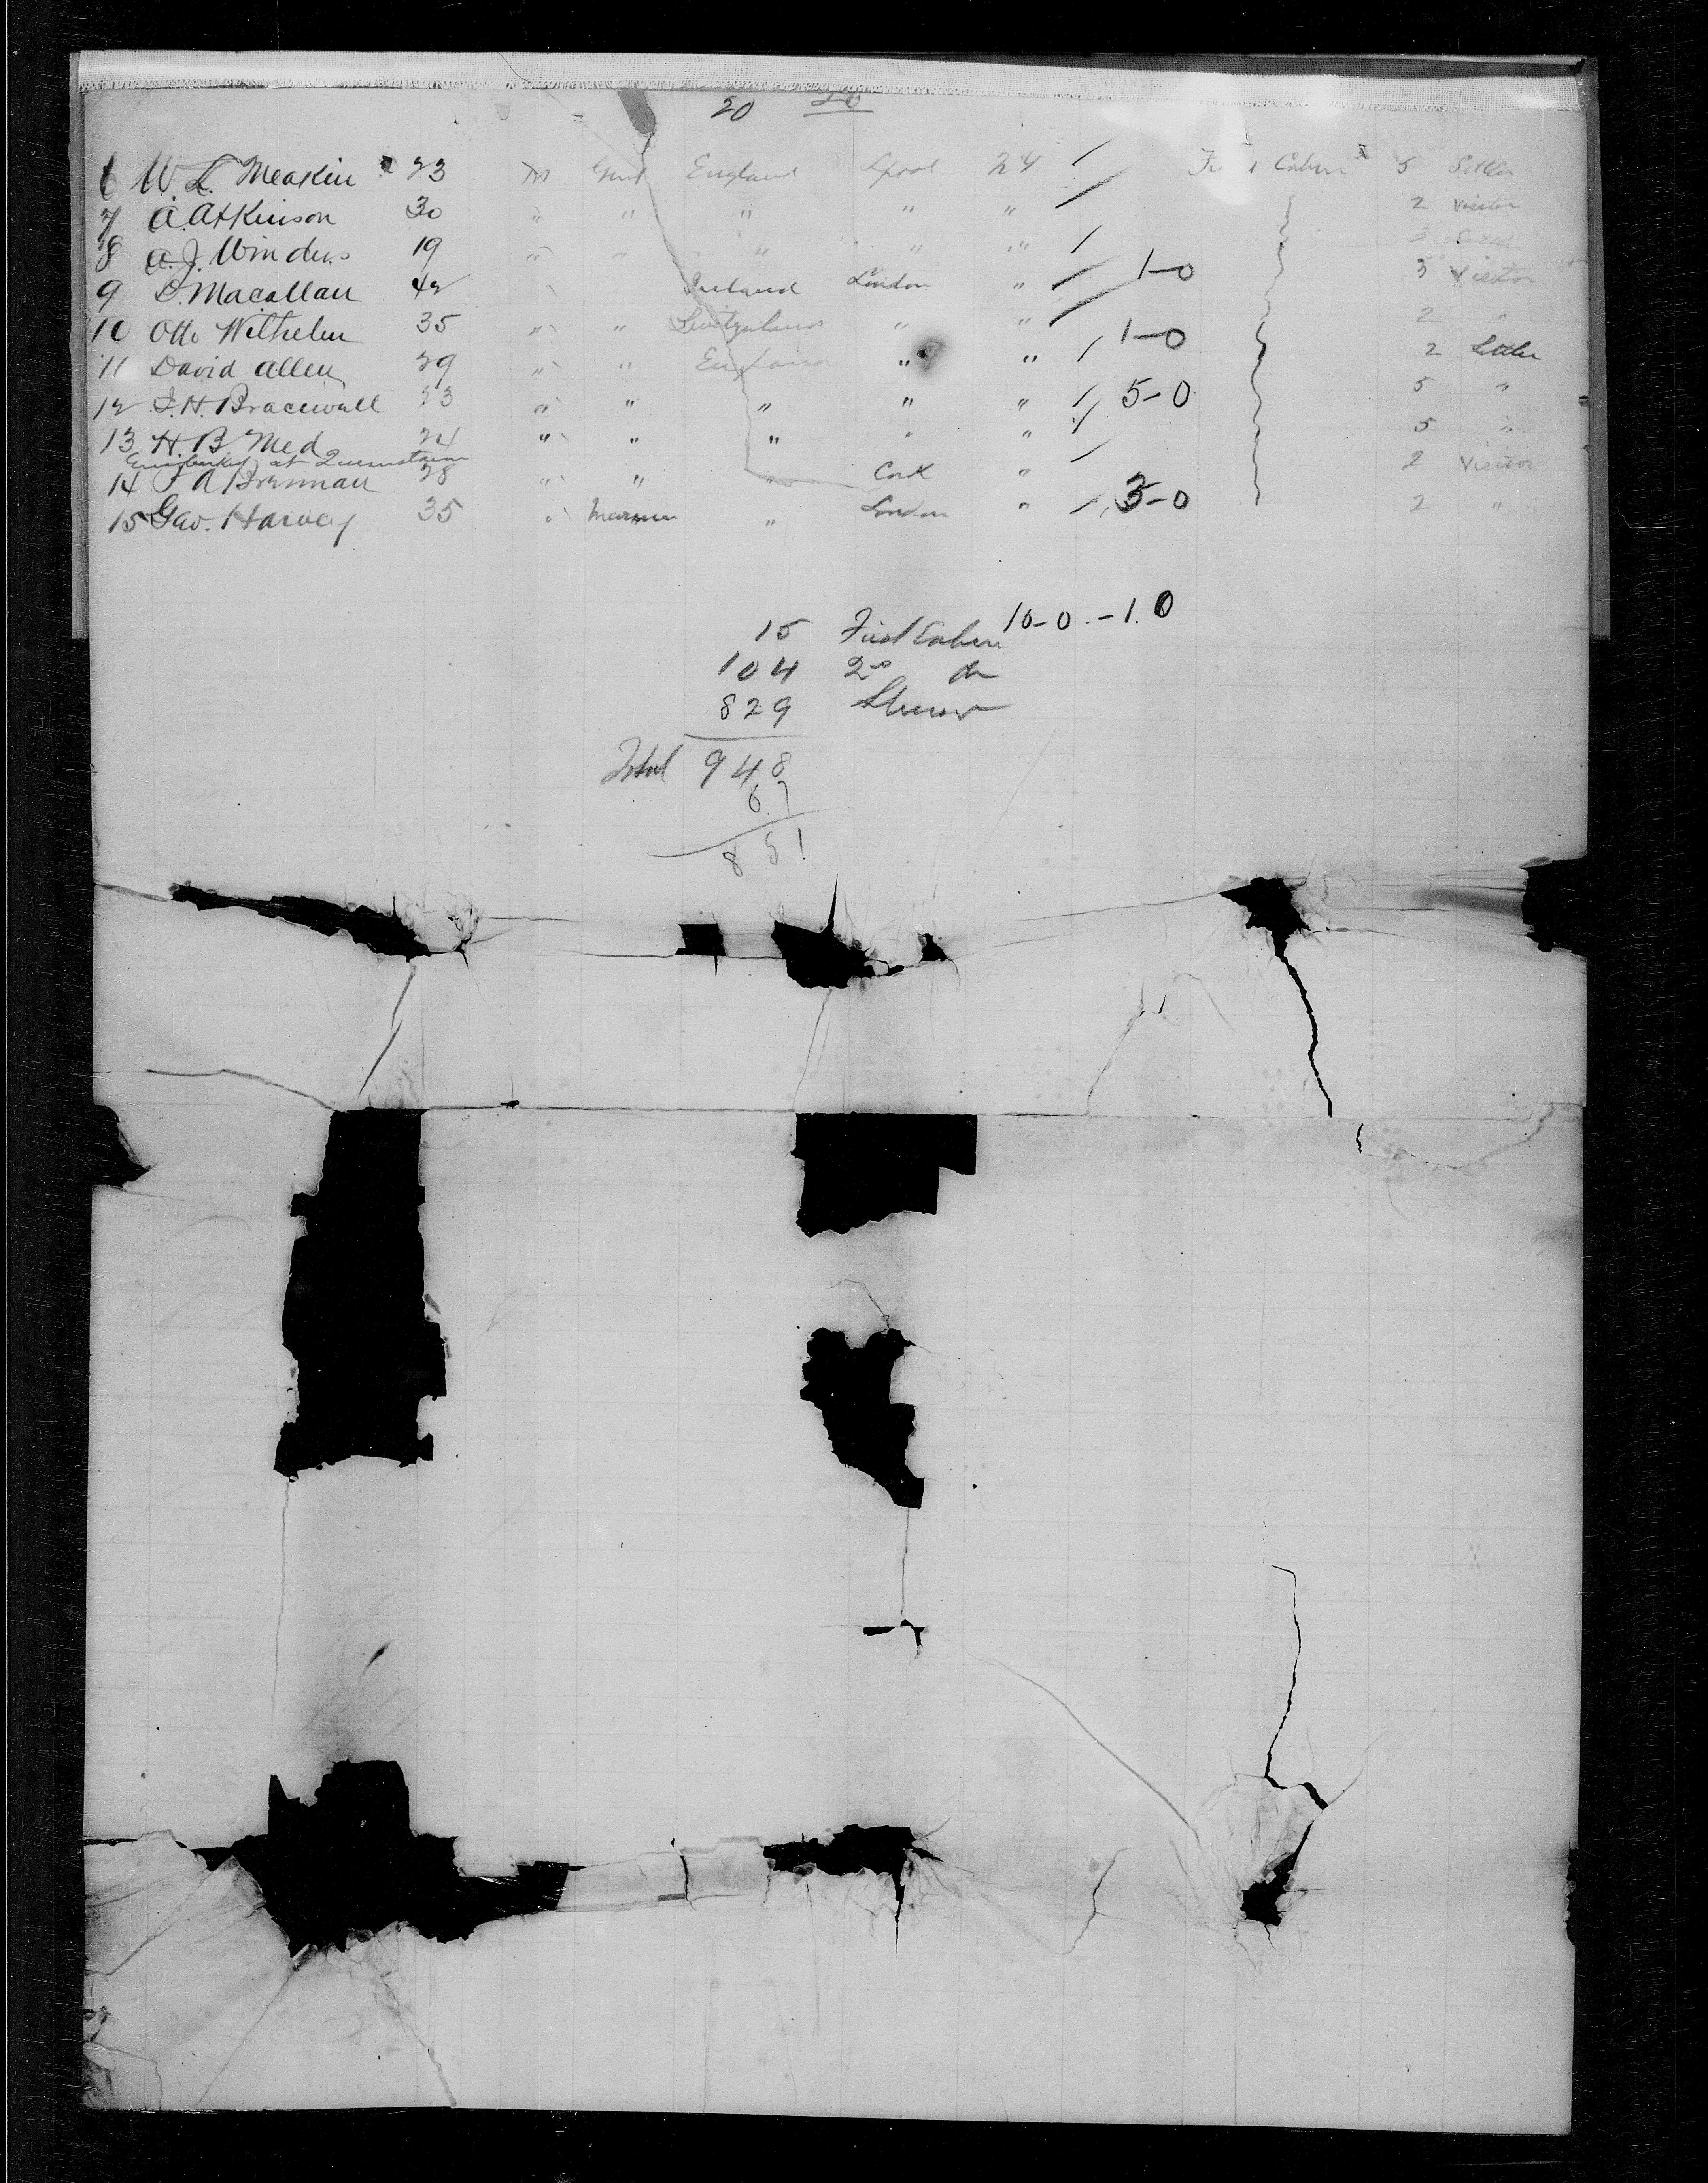 20
6 W. L. Meakin 23 M Gent England Lpool NY / First Cabin 5 Settler
7 A. Atkinson 30 " " " " " / 2 Visitor
8 A. J. Winders 19 " " " " / 3 Settler
9 D. Macallan 42 " Ireland London " / 1-0 3 Visitor
10 Otto Wilhelm 35 " " Switzerland " " / 2 "
11 David Allen 29 " " England " " / 1-0 2 Settler
12 J. H. Bracewell 23 " " " " " / 5-0 5 "
13 H. B. Med 24 " " " " " / 5 "
Embarked at Queenstown
14 F A Brennan 28 " " " Cork " / 2 Visitor
15 Geo. Harvey 35 " Mariner " London " / 3-0 2 "
15 First Cabin 10-0-1.0
104 2nd do
829 Steerage
Total 948
67
851